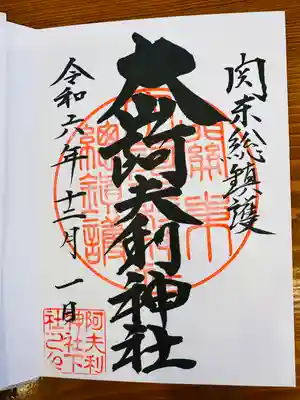 関东総鎮護
大山阿夫利神社
令和六年十二月一日
關東
總鎮護
阿夫利
神社下